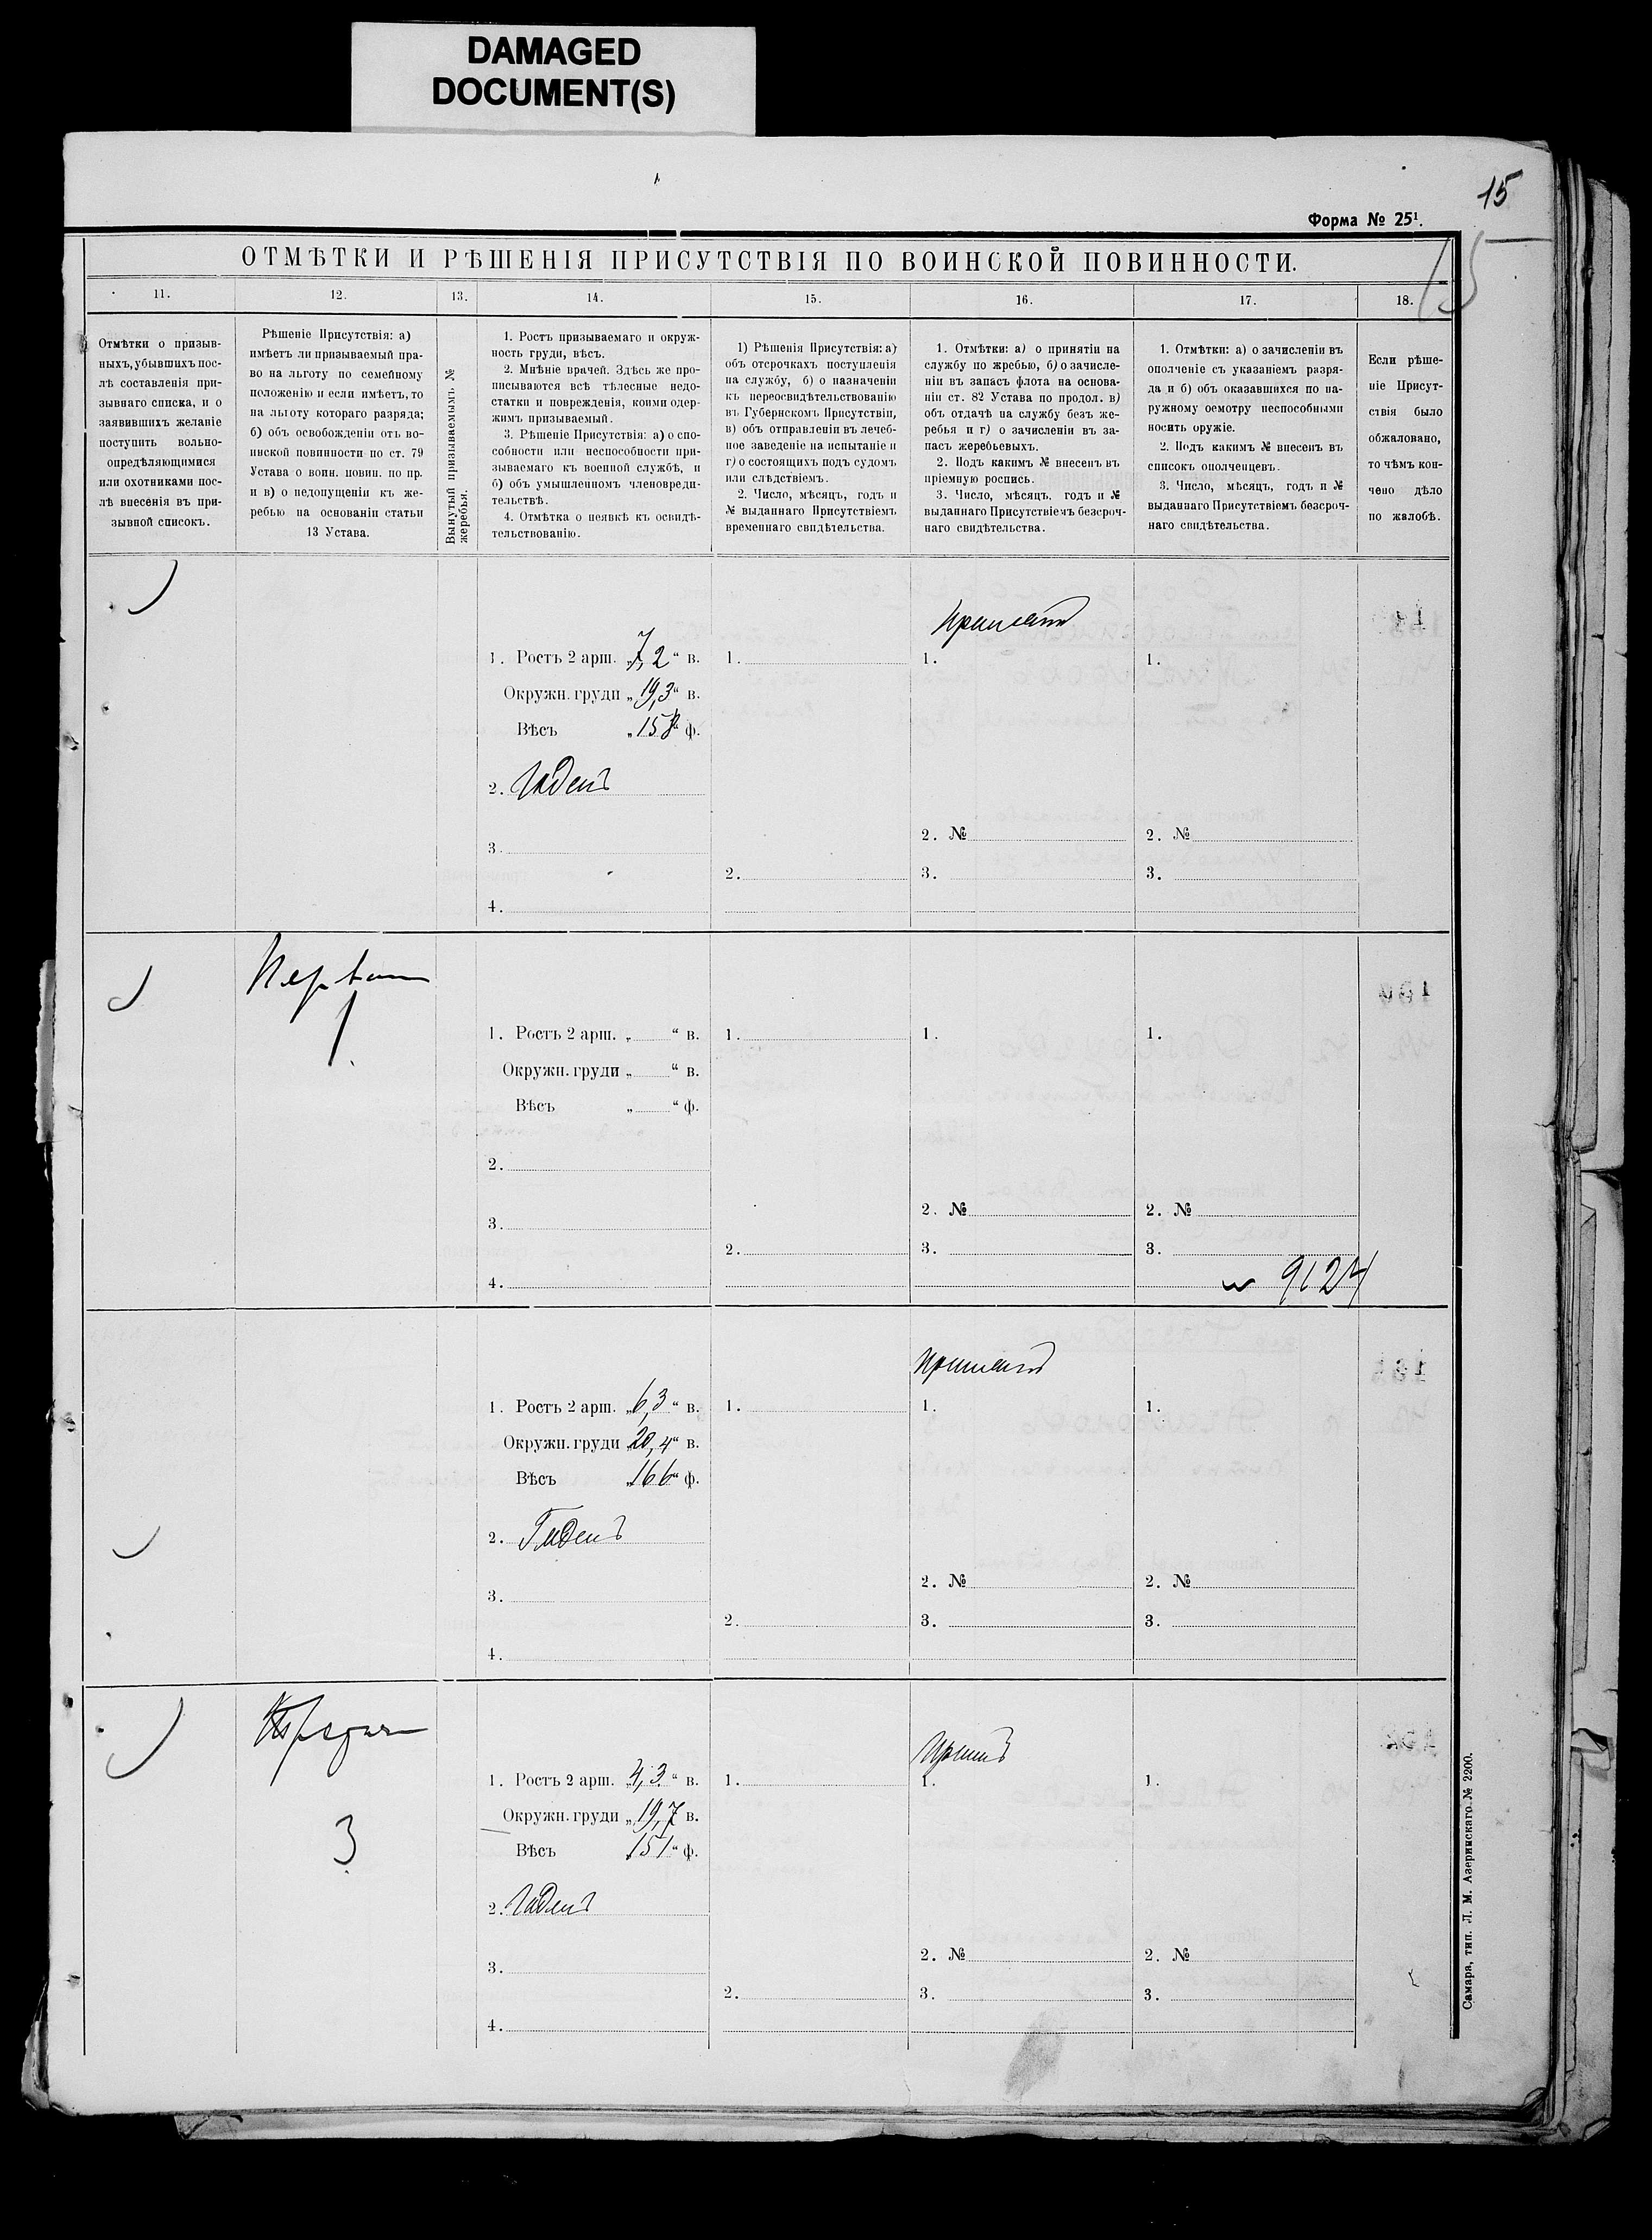 DAMAGED
DOCUMENT(S)
15
Форма № 25¹.
15
ОТМѢТКИ И РѢШЕНІЯ ПРИСУТСТВІЯ ПО ВОИНСКОЙ ПОВИННОСТИ.
11. 12. 13. 14. 15. 16. 17. 18.
Отмѣтки о призыв-
ныхъ, убывшихъ пос-
лѣ составленія при-
зывнаго списка, и о
заявившихъ желаніе
поступить вольно-
опредѣляющимися
или охотниками пос-
лѣ внесенія въ при-
зывной списокъ.
Рѣшеніе Присутствія: а)
имѣетъ ли призываемый пра-
во на льготу по семейному
положенію и если имѣетъ, то
на льготу котораго разряда;
б) объ освобожденіи отъ во-
инской повинности по ст. 79
Устава о воин. повин. по пр.
и в) о недопущеніи къ же-
ребью на основаніи статьи
13 Устава.
Вынутый призываемымъ №
жеребья.
1. Ростъ призываемаго и окруж-
ность груди, вѣсъ.
2. Мнѣніе врачей. Здѣсь же про-
писываются всѣ тѣлесные недо-
статки и поврежденія, коими одер-
жимъ призываемый.
3. Рѣшеніе Присутствія: а) о спо-
собности или неспособности при-
зываемаго къ военной службѣ, и
б) объ умышленномъ членовреди-
тельствѣ.
4. Отмѣтка о неявкѣ къ освидѣ-
тельствованію.
1) Рѣшенія Присутствія: а)
объ отсрочкахъ поступленія
на службу, б) о назначеніи
къ переосвидѣтельствованію
въ Губернскомъ Присутствіи,
в) объ отправленіи въ лечеб-
ное заведеніе на испытаніе и
г) о состоящихъ подъ судомъ
или слѣдствіемъ.
2. Число, мѣсяцъ, годъ и
№ выданнаго Присутствіемъ
временнаго свидѣтельства.
1. Отмѣтки: а) о принятіи на
службу по жребью, б) о зачисле-
ніи въ запасъ флота на основа-
ніи ст. 82 Устава по продол. в)
объ отдачѣ на службу безъ же-
ребья и г) о зачисленіи въ за-
пасъ жеребьевыхъ.
2. Подъ какимъ № внесенъ въ
пріемную роспись.
3. Число, мѣсяцъ, годъ и №
выданнаго Присутствіемъ безсроч-
наго свидѣтельства.
1. Отмѣтки: а) о зачисленіи въ
ополченіе съ указаніемъ разря-
да и б) объ оказавшихся по на-
ружному осмотру неспособными
носить оружіе.
2. Подъ какимъ № внесенъ въ
списокъ ополченцевъ.
3. Число, мѣсяцъ, годъ и №
выданнаго Присутствіемъ безсроч-
наго свидѣтельства.
Если рѣше-
ніе Присут-
ствія было
обжаловано,
то чѣмъ кон-
чено дѣло
по жалобѣ.
Принятъ
1. Ростъ 2 арш. „7,2“ в. 1. 1. 1.
Окружн. груди „19,3“ в.
Вѣсъ „158“ ф.
2. Годенъ
2. № 2. №
3.
2. 3. 3.
4.
Первый
1
1. Ростъ 2 арш. „ “ в. 1. 1. 1.
Окружн. груди „ “ в.
Вѣсъ „ “ ф.
2.
2. № 2. №
3.
2. 3. 3.
4. 9124
Принятъ
1. Ростъ 2 арш. „6,3“ в. 1. 1. 1.
Окружн. груди „20,4“ в.
Вѣсъ „166“ ф.
2. Годенъ
2. № 2. №
3.
2. 3. 3.
4.
3
Принятъ
1. Ростъ 2 арш. „4,3“ в. 1. 1. 1.
Окружн. груди „19,7 в.
Вѣсъ „151“ ф.
2. Годенъ
2. № 2. №
3.
2. 3. 3.
4.
Самара, тип. Л. М. Азеринскаго. № 2200.